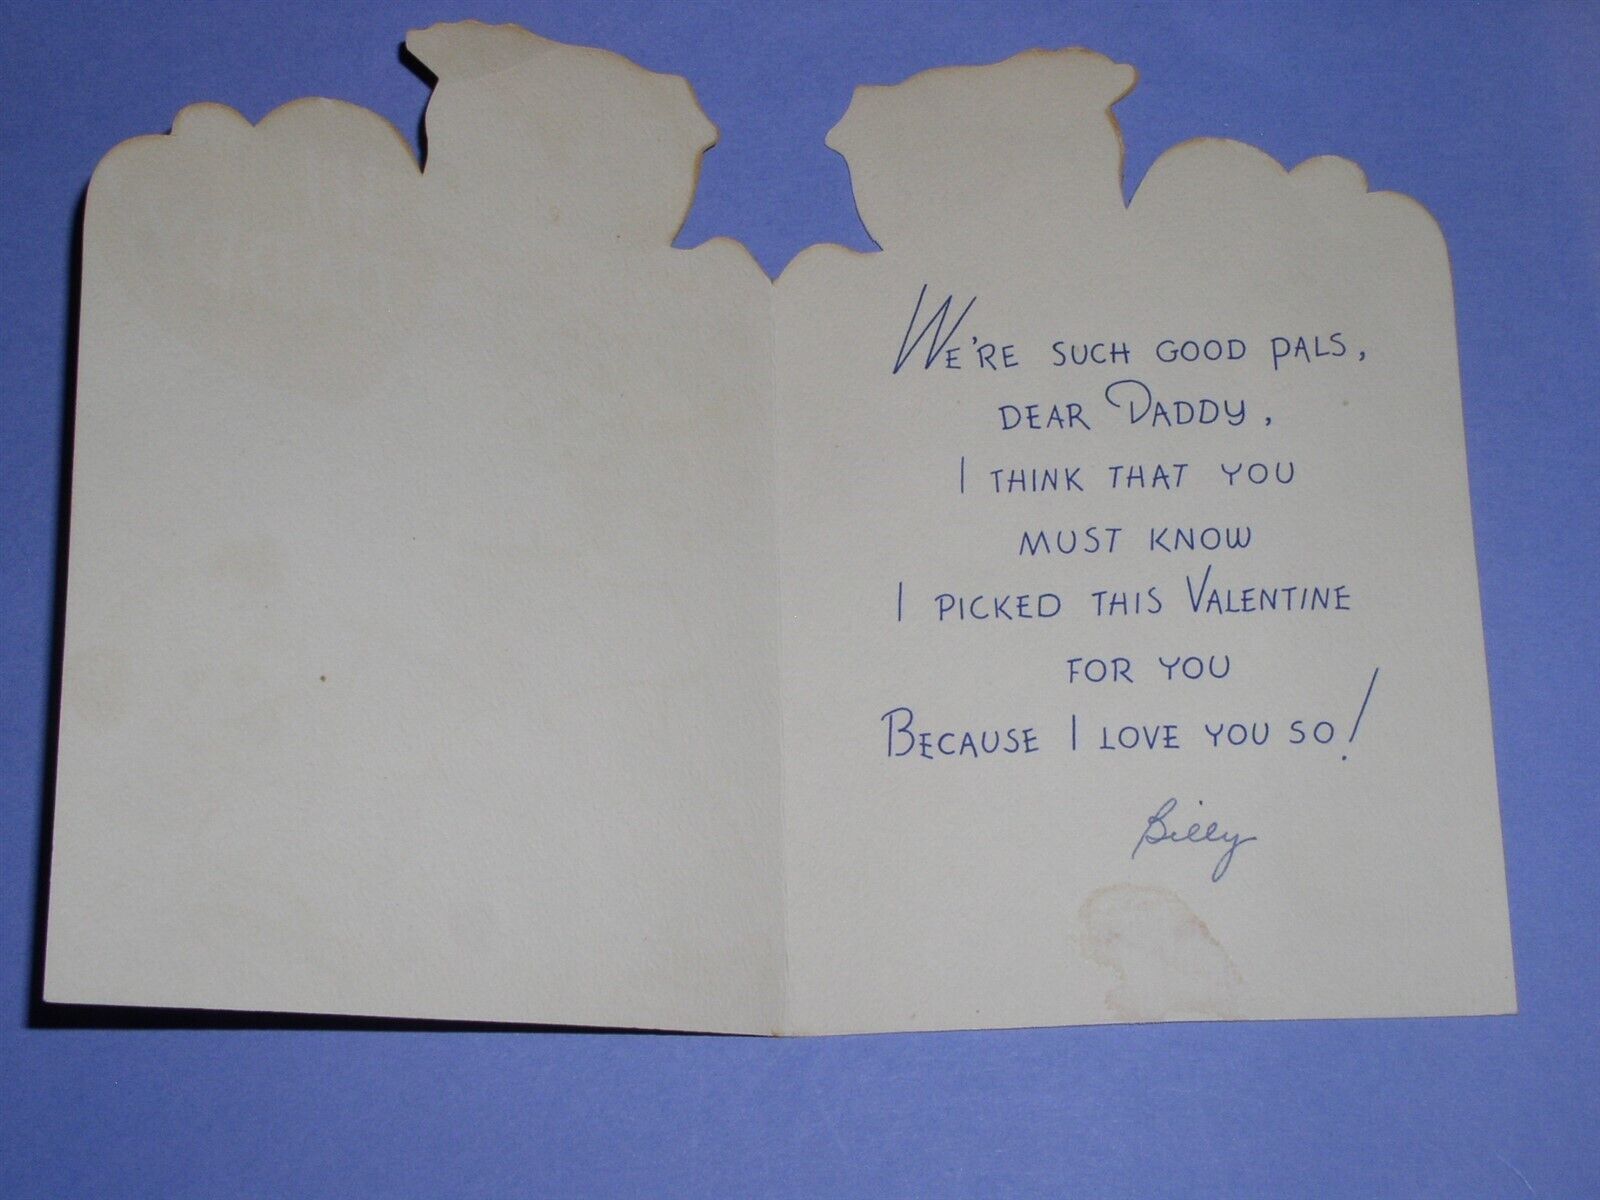 WE'RE SUCH GOOD PALS,
DEAR DADDY,
I THINK THAT YOU
MUST KNOW
I PICKED THIS VALENTINE
FOR YOU
BECAUSE I LOVE YOU SO!
Billy